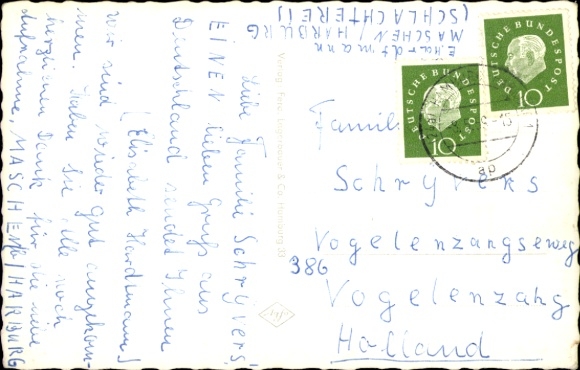 E. Hardtmann
MASCHEN / HARBURG
(SCHLACHTEREI)
Liebe Familie Schryvers!
EINEN lieben Gruß aus
Deutschland sendet Ihnen
(Elisabeth Hardtmann)
Wir sind wieder gut angekom-
men. Haben Sie alle noch
herzlichen Dank für die nette
Aufnahme. MASCHEN/HARBURG
DEUTSCHE BUNDESPOST
10
DEUTSCHE BUNDESPOST
10
ap
Famili
Schryvers
Vogelenzangseweg
386
Vogelenzang
Holland